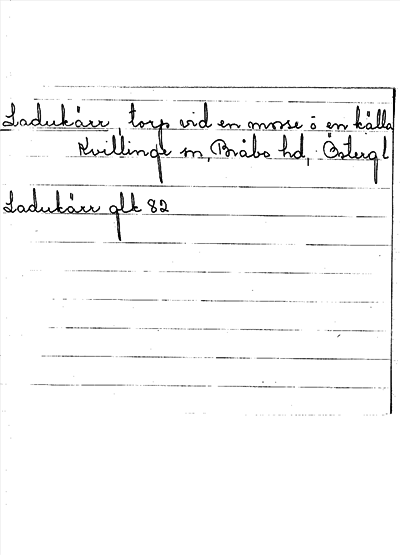 Ladukärr, torp vid en mosse o en källa
Kvillinge sn, Bråbo hd, Östergl
Ladukärr glk 82